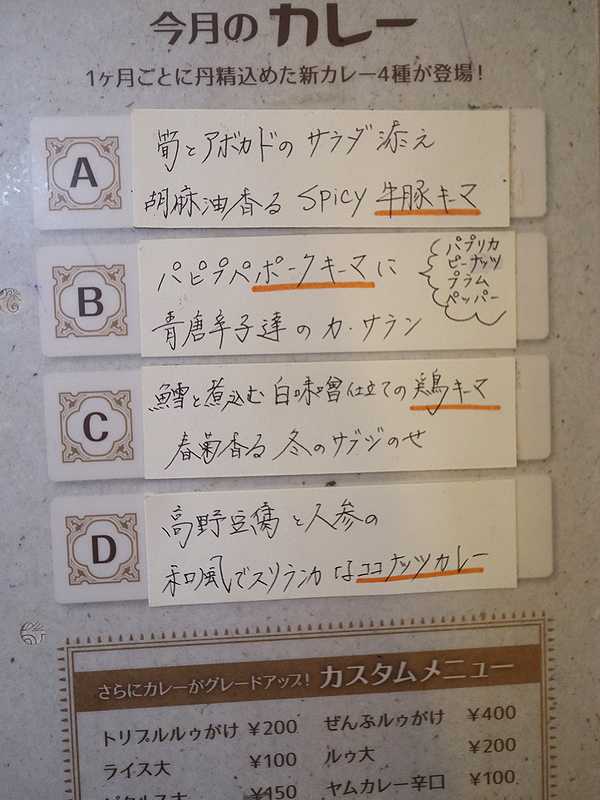 今月のカレー
1ヶ月ごとに丹精込めた新カレー4種が登場!
A
筍とアボカドのサラダ添え
胡麻油香る spicy 牛豚キーマ
B
パピプペポークキーマに
青唐辛子達のカ・サラン
パプリカ
ピーナッツ
プラム
ペッパー
C
鱈と煮込む白味噌仕立ての鶏キーマ
春菊香る冬のサブジのせ
D
高野豆腐と人参の
和風でスリランカなココナッツカレー
さらにカレーがグレードアップ! カスタムメニュー
トリプルルゥがけ ¥200 ぜんぶルゥがけ ¥400
ライス大 ¥100 ルゥ大 ¥200
¥150 ヤムカレー辛口 ¥100